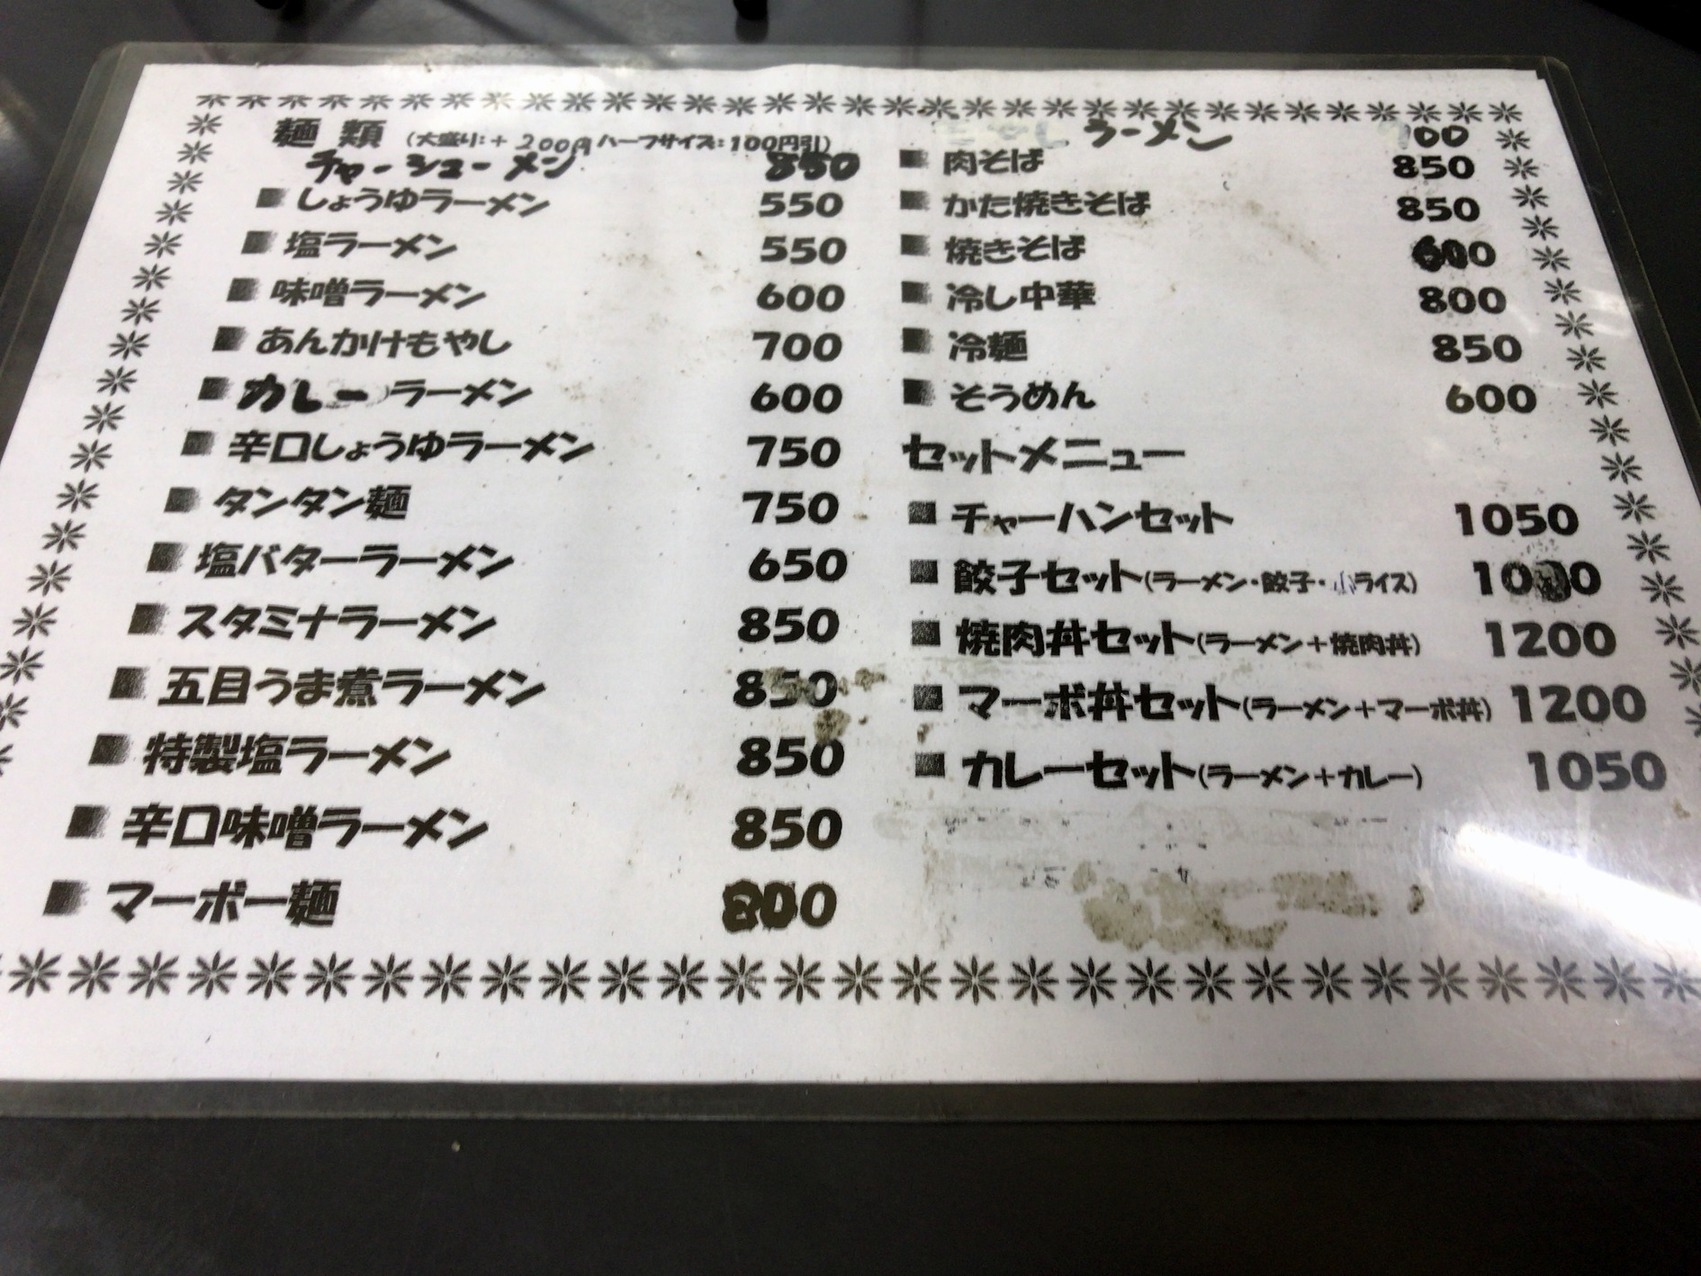 麺 類 (大盛り:+ 200円 ハーフサイズ:100円引)
チャーシューメン 850
■ しょうゆラーメン 550
■ 塩ラーメン 550
■ 味噌ラーメン 600
■ あんかけもやし 700
■ カレーラーメン 600
■ 辛口しょうゆラーメン 750
■ タンタン麺 750
■ 塩バターラーメン 650
■ スタミナラーメン 850
■ 五目うま煮ラーメン 850
■ 特製塩ラーメン 850
■ 辛口味噌ラーメン 850
■ マーボー麺 800
ラーメン
■ 肉そば 850
■ かた焼きそば 850
■ 焼きそば 600
■ 冷し中華 800
■ 冷麺 850
■ そうめん 600
セットメニュー
■ チャーハンセット 1050
■ 餃子セット(ラーメン・餃子・小ライス)
■ 焼肉丼セット(ラーメン+焼肉丼) 1200
■ マーボ丼セット(ラーメン+マーボ丼) 1200
■ カレーセット(ラーメン+カレー) 1050